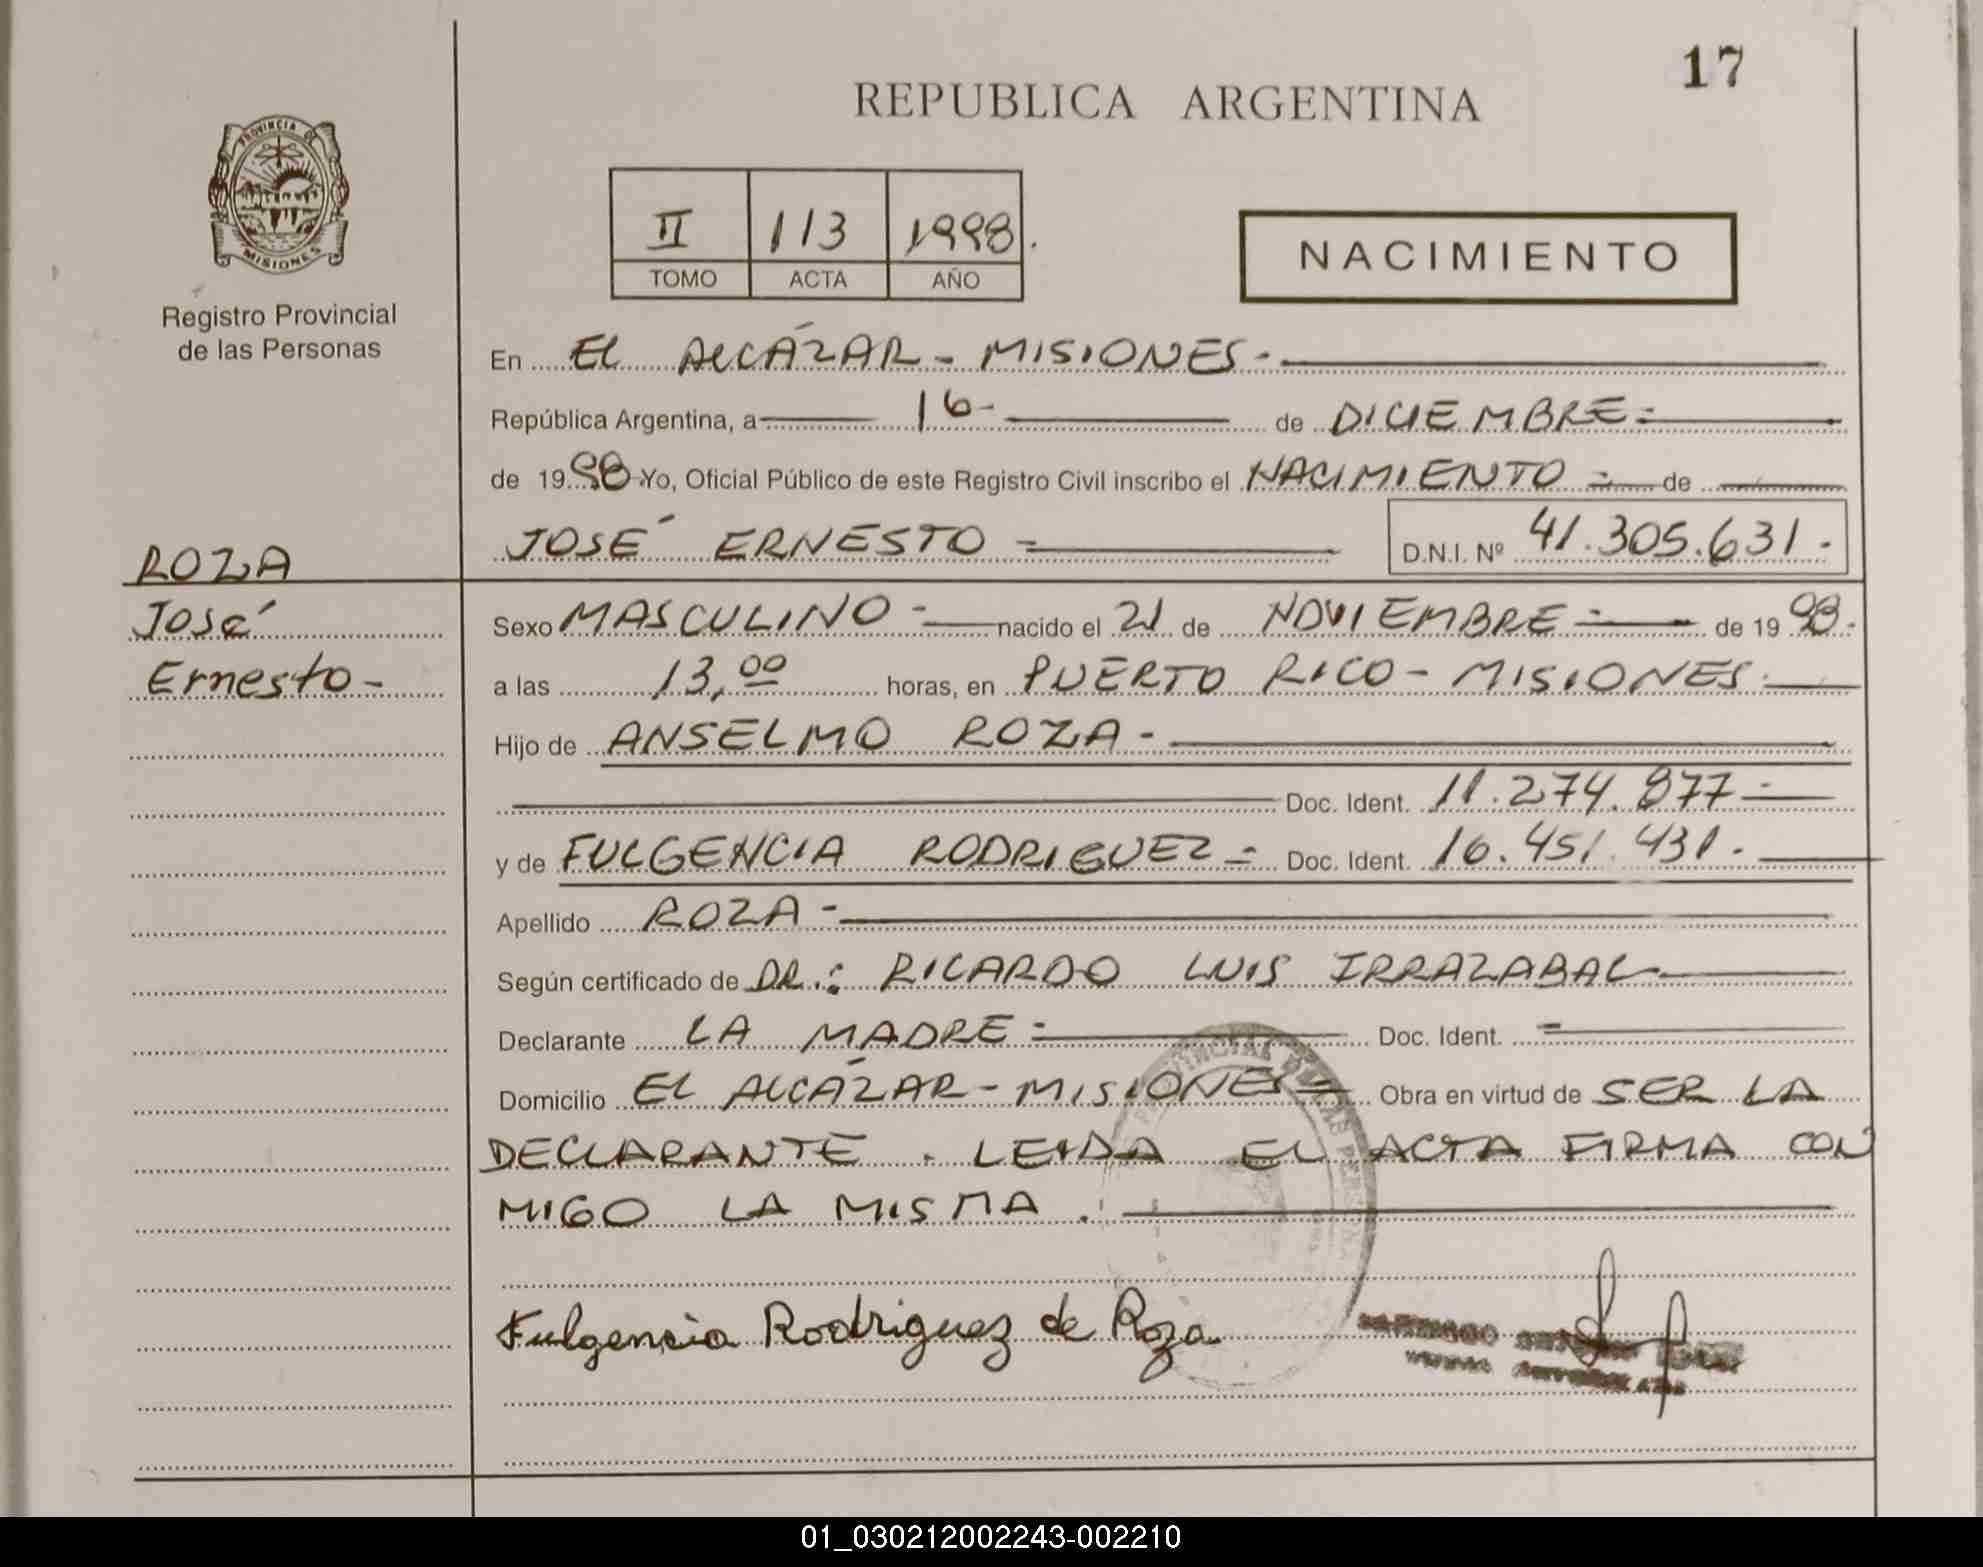 17
REPUBLICA ARGENTINA
PROVINCIA DE
MISIONES
Registro Provincial
de las Personas
II 113 1998.
TOMO ACTA AÑO
NACIMIENTO
En EL ALCÁZAR - MISIONES -
República Argentina, a 16- de DICIEMBRE =
de 1998 Yo, Oficial Público de este Registro Civil inscribo el NACIMIENTO = de
JOSÉ ERNESTO = D.N.I. Nº 41.305.631.-
ROZA
José
Ernesto -
Sexo MASCULINO - nacido el 21 de NOVIEMBRE = de 19 98.-
a las 13,00 horas, en PUERTO RICO - MISIONES.
Hijo de ANSELMO ROZA -
Doc. Ident. 11.274.877 =
y de FULGENCIA RODRIGUEZ = Doc. Ident. 16.451.431.-
Apellido ROZA -
Según certificado de DR.: RICARDO LUIS IRRAZABAL
Declarante LA MADRE = Doc. Ident. =
Domicilio EL ALCÁZAR - MISIONES = Obra en virtud de SER LA
DECLARANTE . LEIDA EL ACTA FIRMA CON
MIGO LA MISMA .
Fulgencia Rodriguez de Roza
01_030212002243-002210